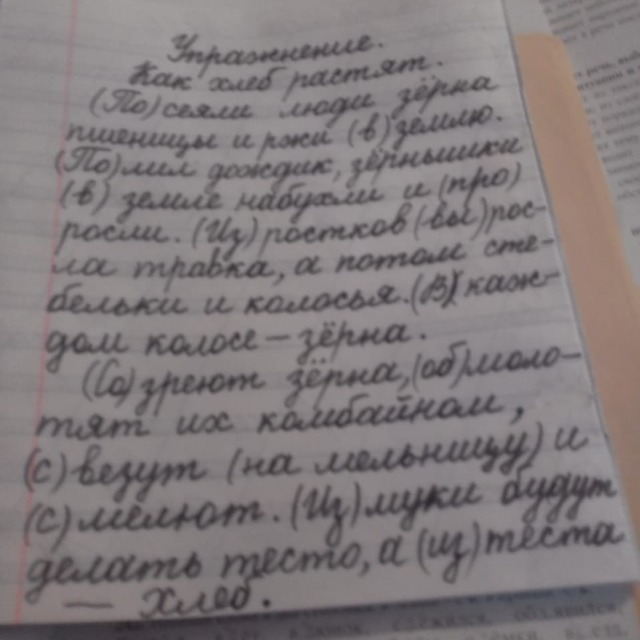 Упражнение.
Как хлеб растят.
(По)сеяли люди зёрна
пшеницы и ржи (в) землю.
(По)лил дождик, зёрнышки
(в) земле набухли и (про)
росли. (Из) ростков (вы)рос-
ла травка, а потом сте-
бельки и колосья. (В) каж-
дом колосе — зёрна.
(Со)зреют зёрна, (об)моло-
тят их комбайном,
(с)везут (на мельницу) и
(с)мелют. (Из) муки будут
делать тесто, а (из) теста
— хлеб.